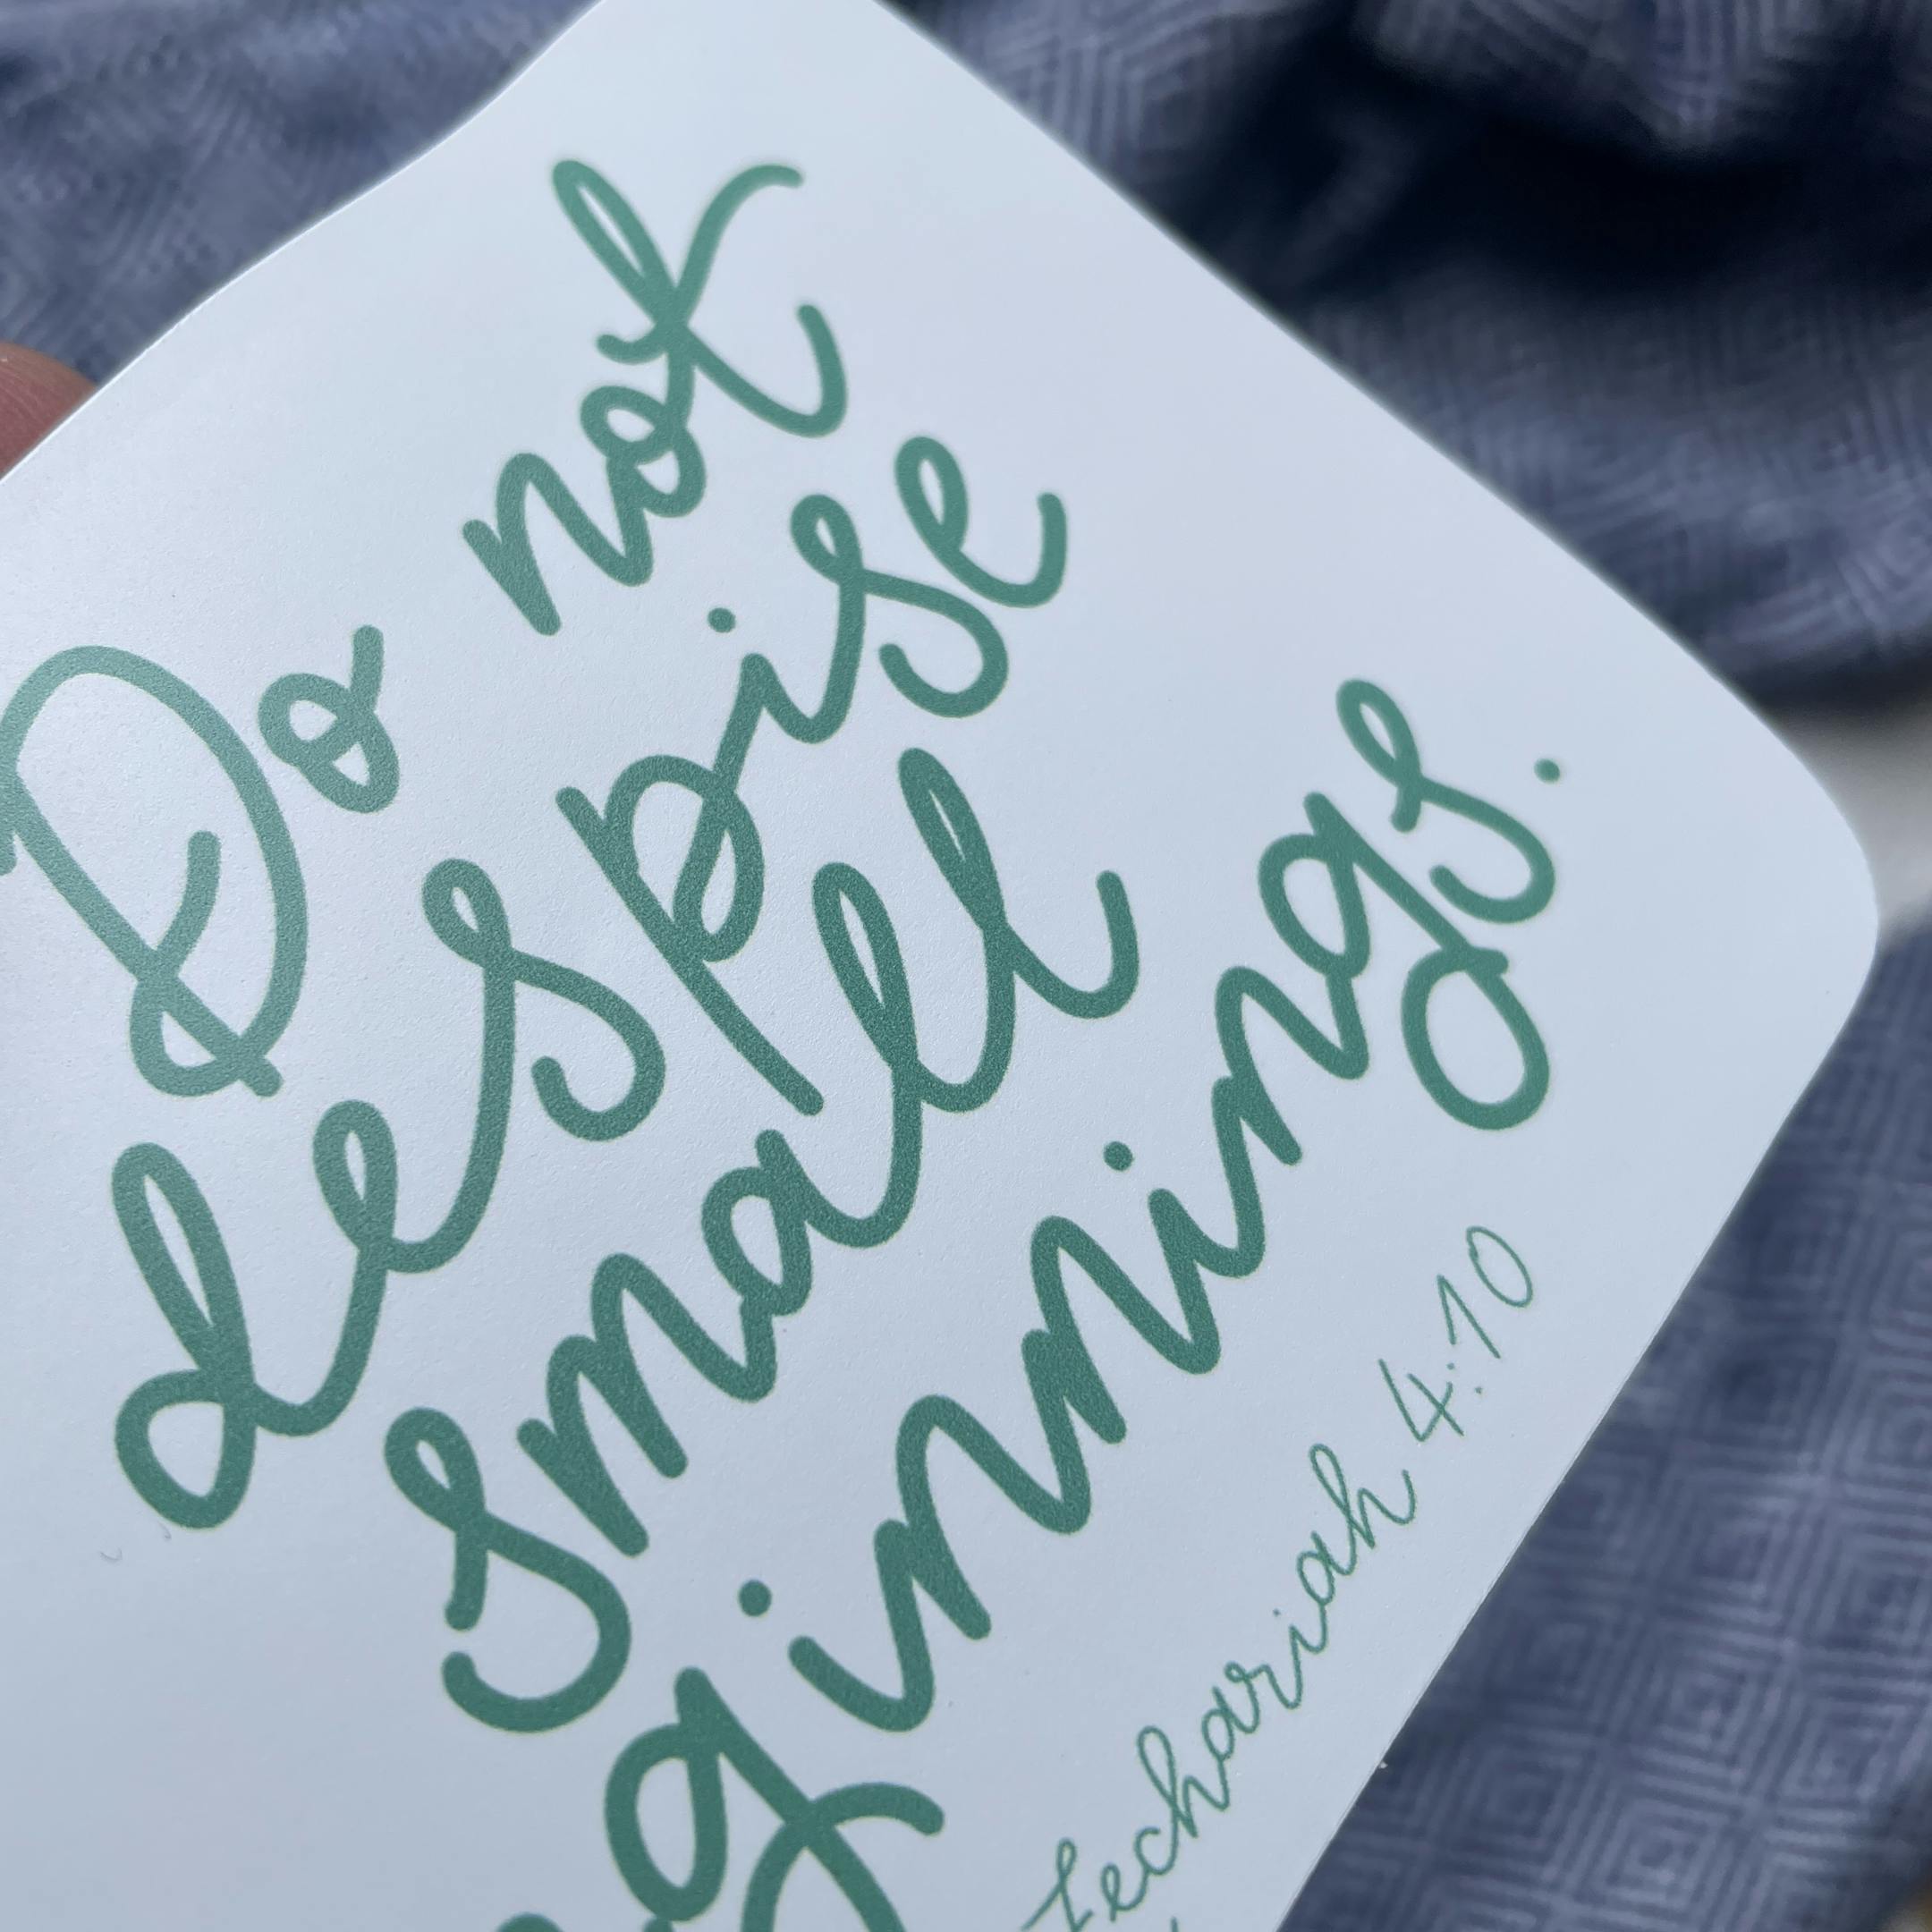 Do not
despise
small
ginnings.
Zechariah 4:10